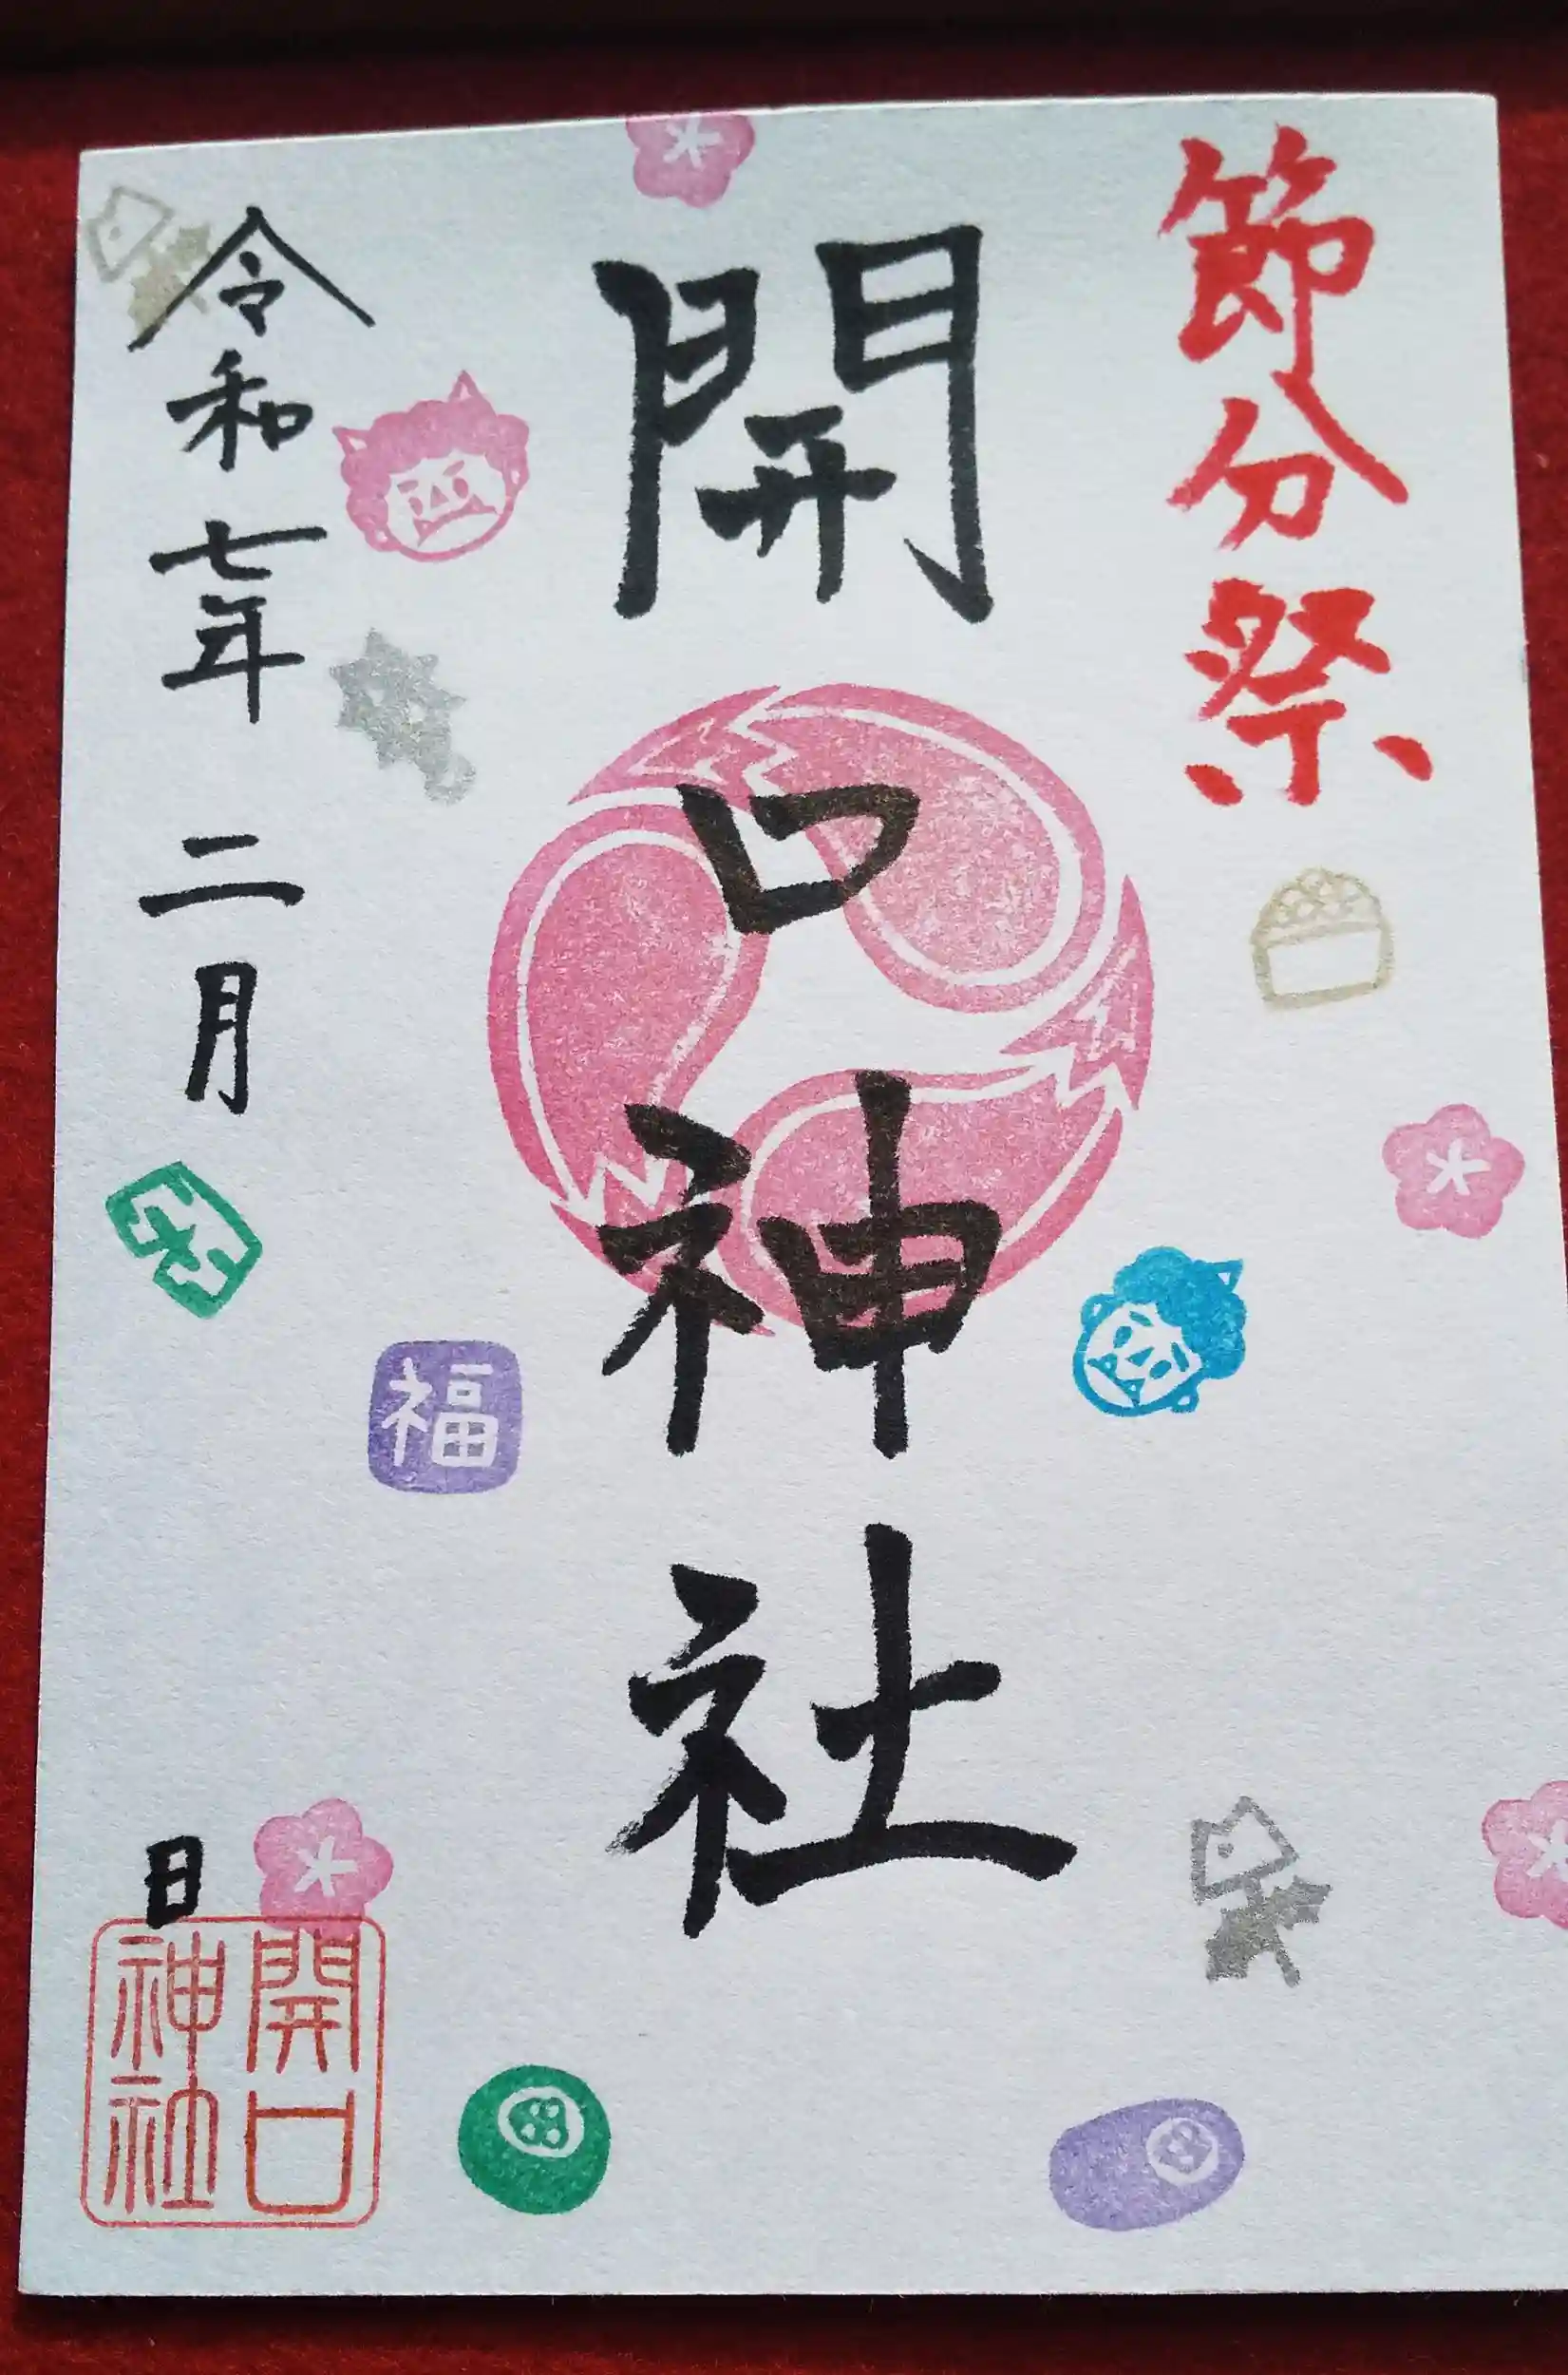 節分祭
開口神社
福
令和七年二月
日
開口
神社